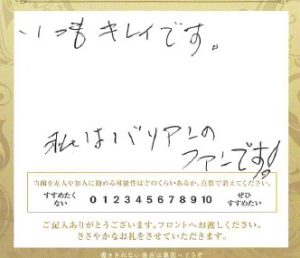 いつもキレイです。
私はバリアンの
ファンです!
当館を友人や知人に勧める可能性はどのくらいあるか、点数で答えてください。
すすめたく
ない
0 1 2 3 4 5 6 7 8 9 10
ぜひ
すすめたい
ご記入ありがとうございます。フロントへお渡しください。
ささやかなお礼をさせていただきます。
書ききれない場合は裏面へどうぞ